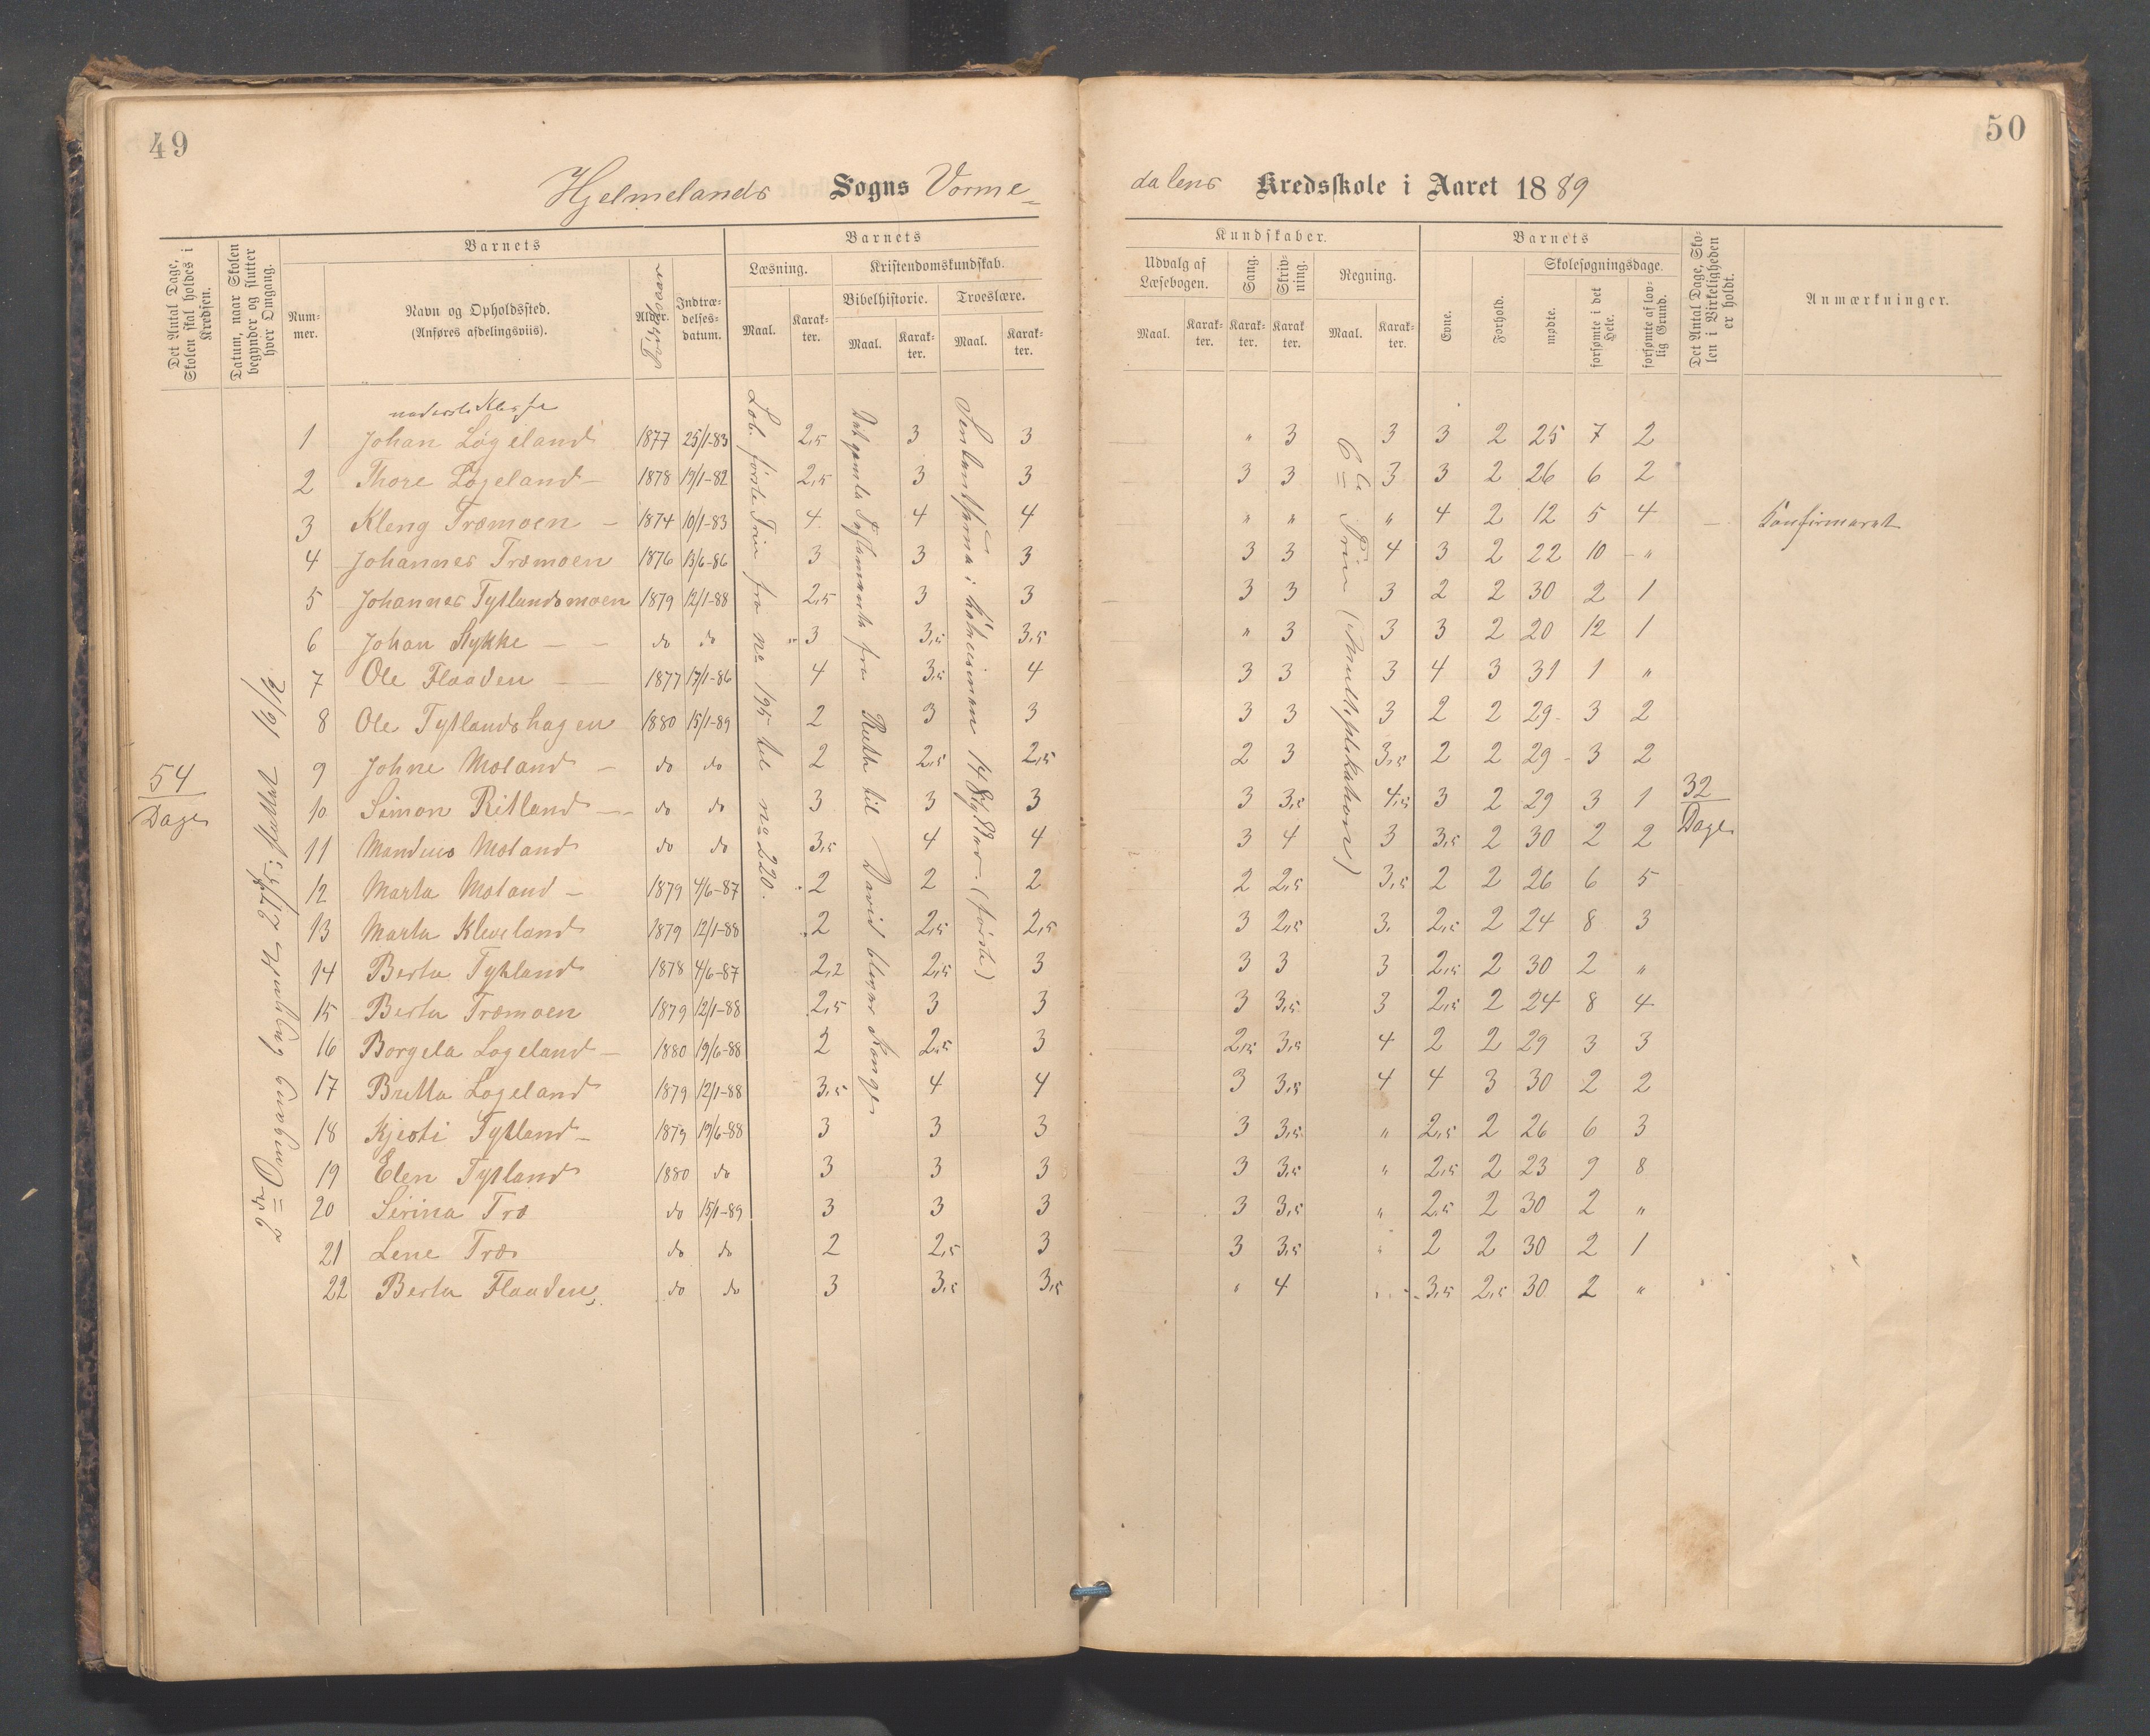 49
50
Hjelmelands Sogns Vorme=
dalens Kredsskole i Aaret 1889
Det Antal Dage, Skolen skal holdes i Kredsen.
Datum, naar Skolen begynder og slutter hver Omgang.
Barnets
Nummer.
Navn og Opholdssted. (Anføres afdelingsviis).
Alder. Fødselsaar
Indtrædelsesdatum.
Barnets
Læsning.
Maal.
Karakter.
Kristendomskundskab.
Bibelhistorie.
Maal.
Karakter.
Troeslære.
Maal.
Karakter.
Kundskaber.
Udvalg af Læsebogen.
Maal.
Karakter.
Sang.
Karakter.
Skrivning.
Karakter.
Regning.
Maal.
Karakter.
Barnets
Evne.
Forhold.
Skolesøgningsdage.
mødte.
forsømte i det Hele.
forsømte af lovlig Grund.
Det Antal Dage, Skolen i Virkeligheden er holdt.
Anmærkninger.
54 Dage
2den Omgang begyndt 27/5; sluttet 16/12
Læb. første Trin fra No 195 til No 220.
Det gamle Testamente fra Ruth til David bliver Konge
14 Stykker (første)
6te Trin (Multiplikation)
32 Dage
nederste Klasse
1 Johan Løgeland 1877 25/1-83 2,5 3 3 " 3 3 3 2 25 7 2
2 Thore Løgeland – 1878 19/1-82 2,5 3 3 3 3 3 3 2 26 6 2
3 Kleng Træmoen – 1874 10/1-83 4 4 4 " " " 4 2 12 5 4 – Konfirmeret
4 Johannes Træmoen 1876 13/6-86 3 3 3 3 3 4 3 2 22 10 "
5 Johannes Tytlandsmoen 1879 12/1-88 2,5 3 3 3 3 3 2 2 30 2 1
6 Johan Rykke – – do do 3 3,5 3,5 " 3 3 3 2 20 12 1
7 Ole Flaaden – – 1877 17/1-86 4 3,5 4 3 3 3 4 3 31 1 "
8 Ole Tytlandshagen 1880 15/1-89 2 3 3 3 3 3 2 2 29 3 2
9 Johne Moland – do do 2 2,5 2,5 2 3 3,5 2 2 29 3 2
10 Simon Ritland – do do 3 3 3 3 3,5 4,5 3 2 29 3 1
11 Mandius Moland do do 3,5 4 4 3 4 3 3,5 2 30 2 2
12 Marta Moland – 1879 4/6-87 2 2 2 2 2,5 3,5 2 2 26 6 5
13 Marta Kleveland 1879 12/1-88 2 2,5 2,5 3 2,5 3 2,5 2 24 8 3
14 Berta Tytland 1878 4/6-87 2,2 2,5 3 3 3 3 2,5 2 30 2 "
15 Berta Træmoen 1879 12/1-88 2,5 3 3 3 3,5 3 2,5 2 24 8 4
16 Borgela Løgeland – 1880 19/6-88 2 2,5 3 2,5 3,5 4 2 2 29 3 3
17 Britta Løgeland 1879 12/1-88 3,5 4 4 3 3,5 4 4 3 30 2 2
18 Kjersti Tytland – 1879 19/6-88 3 3 3 3 3,5 " 2,5 2 26 6 3
19 Elen Tytland 1880 do 3 3 3 3 3,5 " 2,5 2 23 9 8
20 Sirina Træ do 15/1-89 3 3 3 3 3,5 " 2,5 2 30 2 "
21 Lene Træ do do 2 2,5 3 3 3,5 " 2 2 30 2 1
22 Berta Flaaden do do 3 3,5 3,5 " 4 " 3,5 2,5 30 2 "